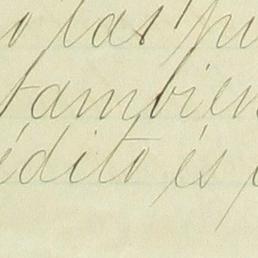 o las
tambien
édito és